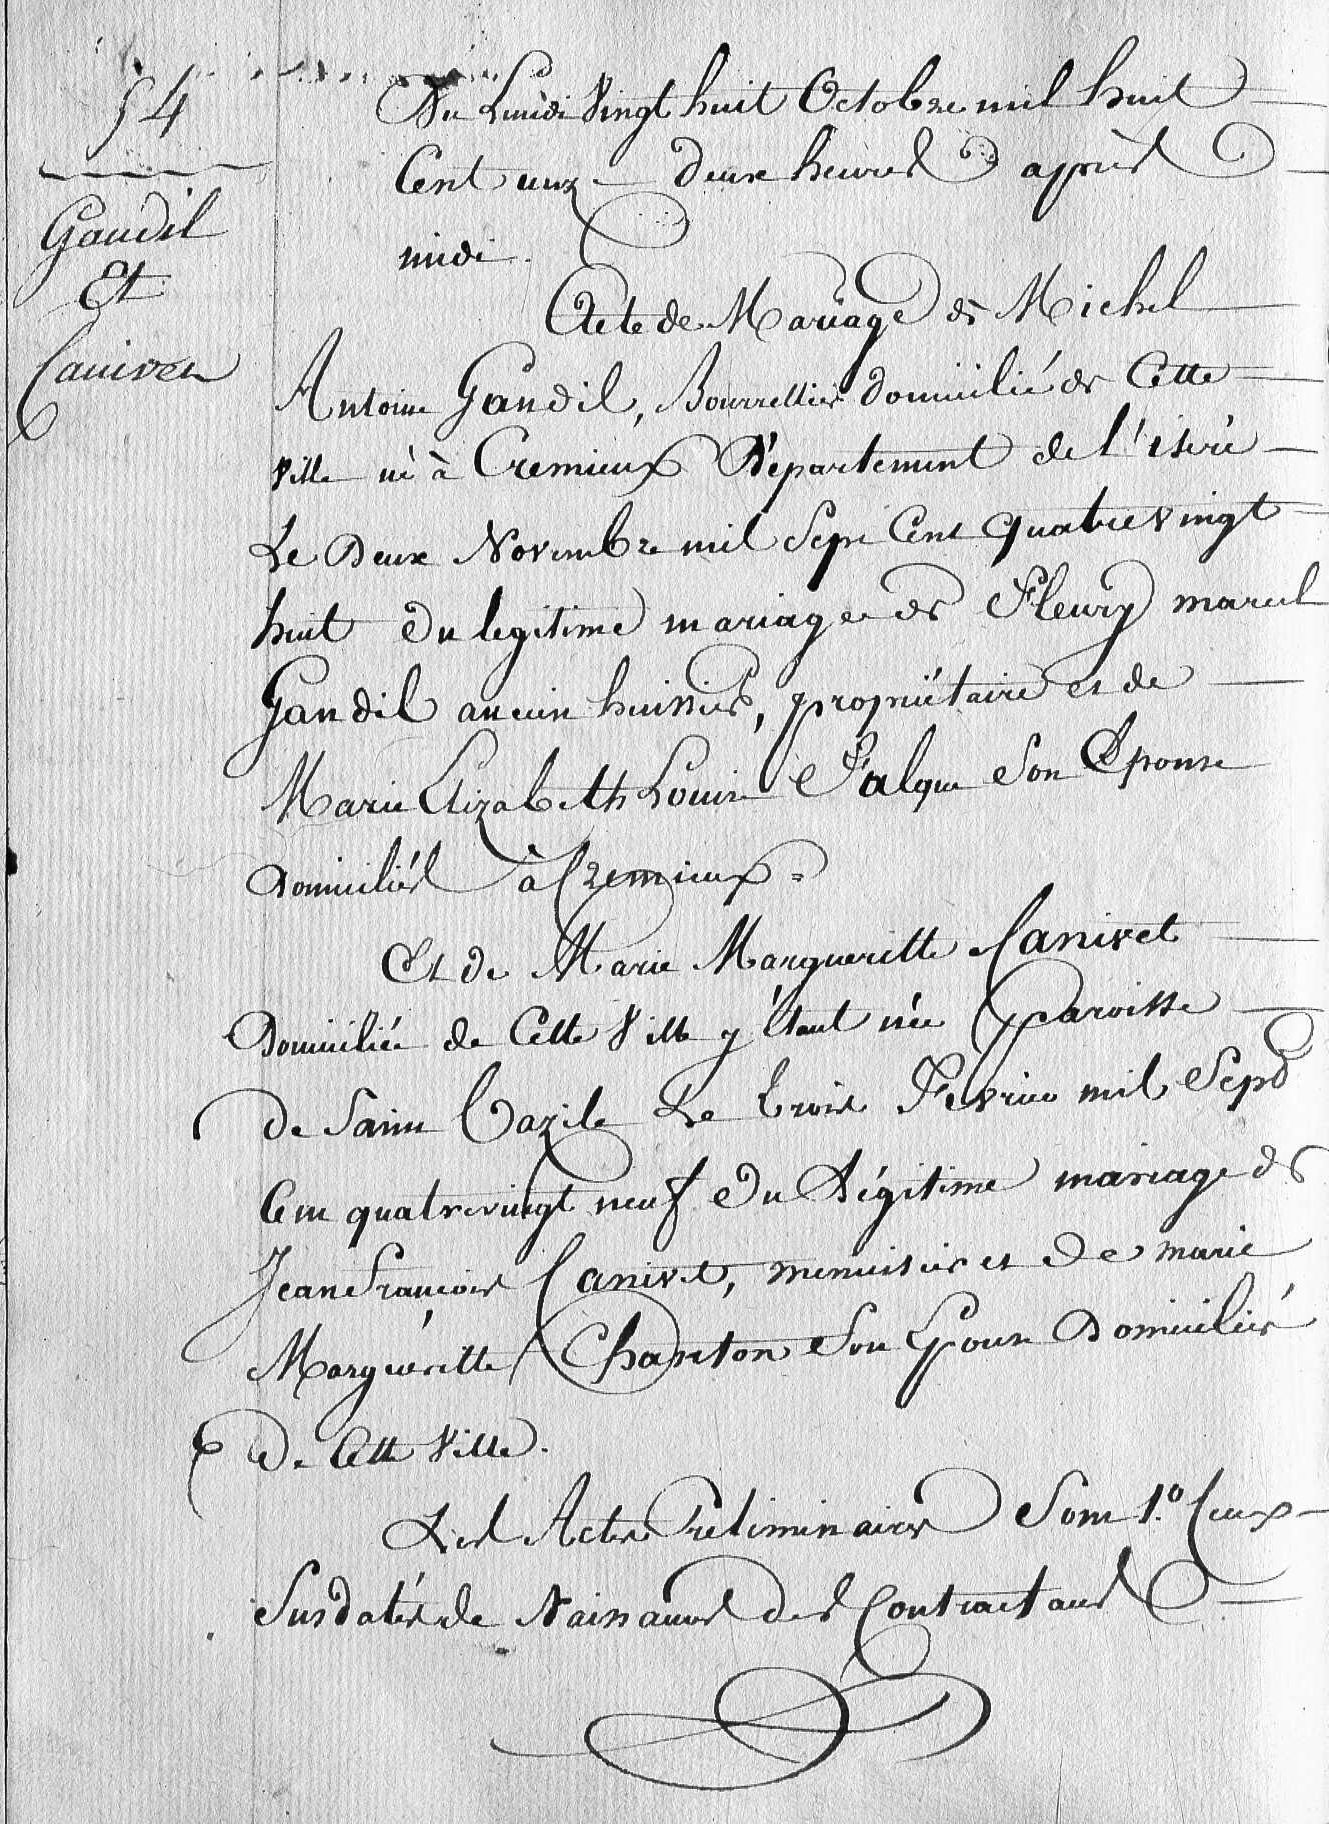 54
Gandil
Et
Canivet
Du Lundi Vingt huit Octobre mil huit
Cent unz deux heures après
midi.
Acte de Mariage de Michel
Antoine Gandil, Bourrellier domicilié de Cette
Ville né à Cremieux Département de l'isère
Le Deux Novembre mil Sept Cent quatre vingt
huit du legitime mariage de Fleury marcel
Gandil ancien huissier, propriétaire et de
Marie Elizabeth Louise Falque Son Epouse
domiciliés à Cremieux =
Et de Marie Margueritte Canivet
Domiciliée de Cette Ville y étant née paroisse
de Saint Bazile Le trois Fevrier mil Sept
Cent quatrevingt neuf du Légitime mariage de
Jean François Canivet, menuisier et de marie
Margueritte Chanton Son Epouse Domiciliés
de Cette Ville.
Les Actes Preliminaires Sont 1.º Ceux
Susdatés de Naissances des Contractans